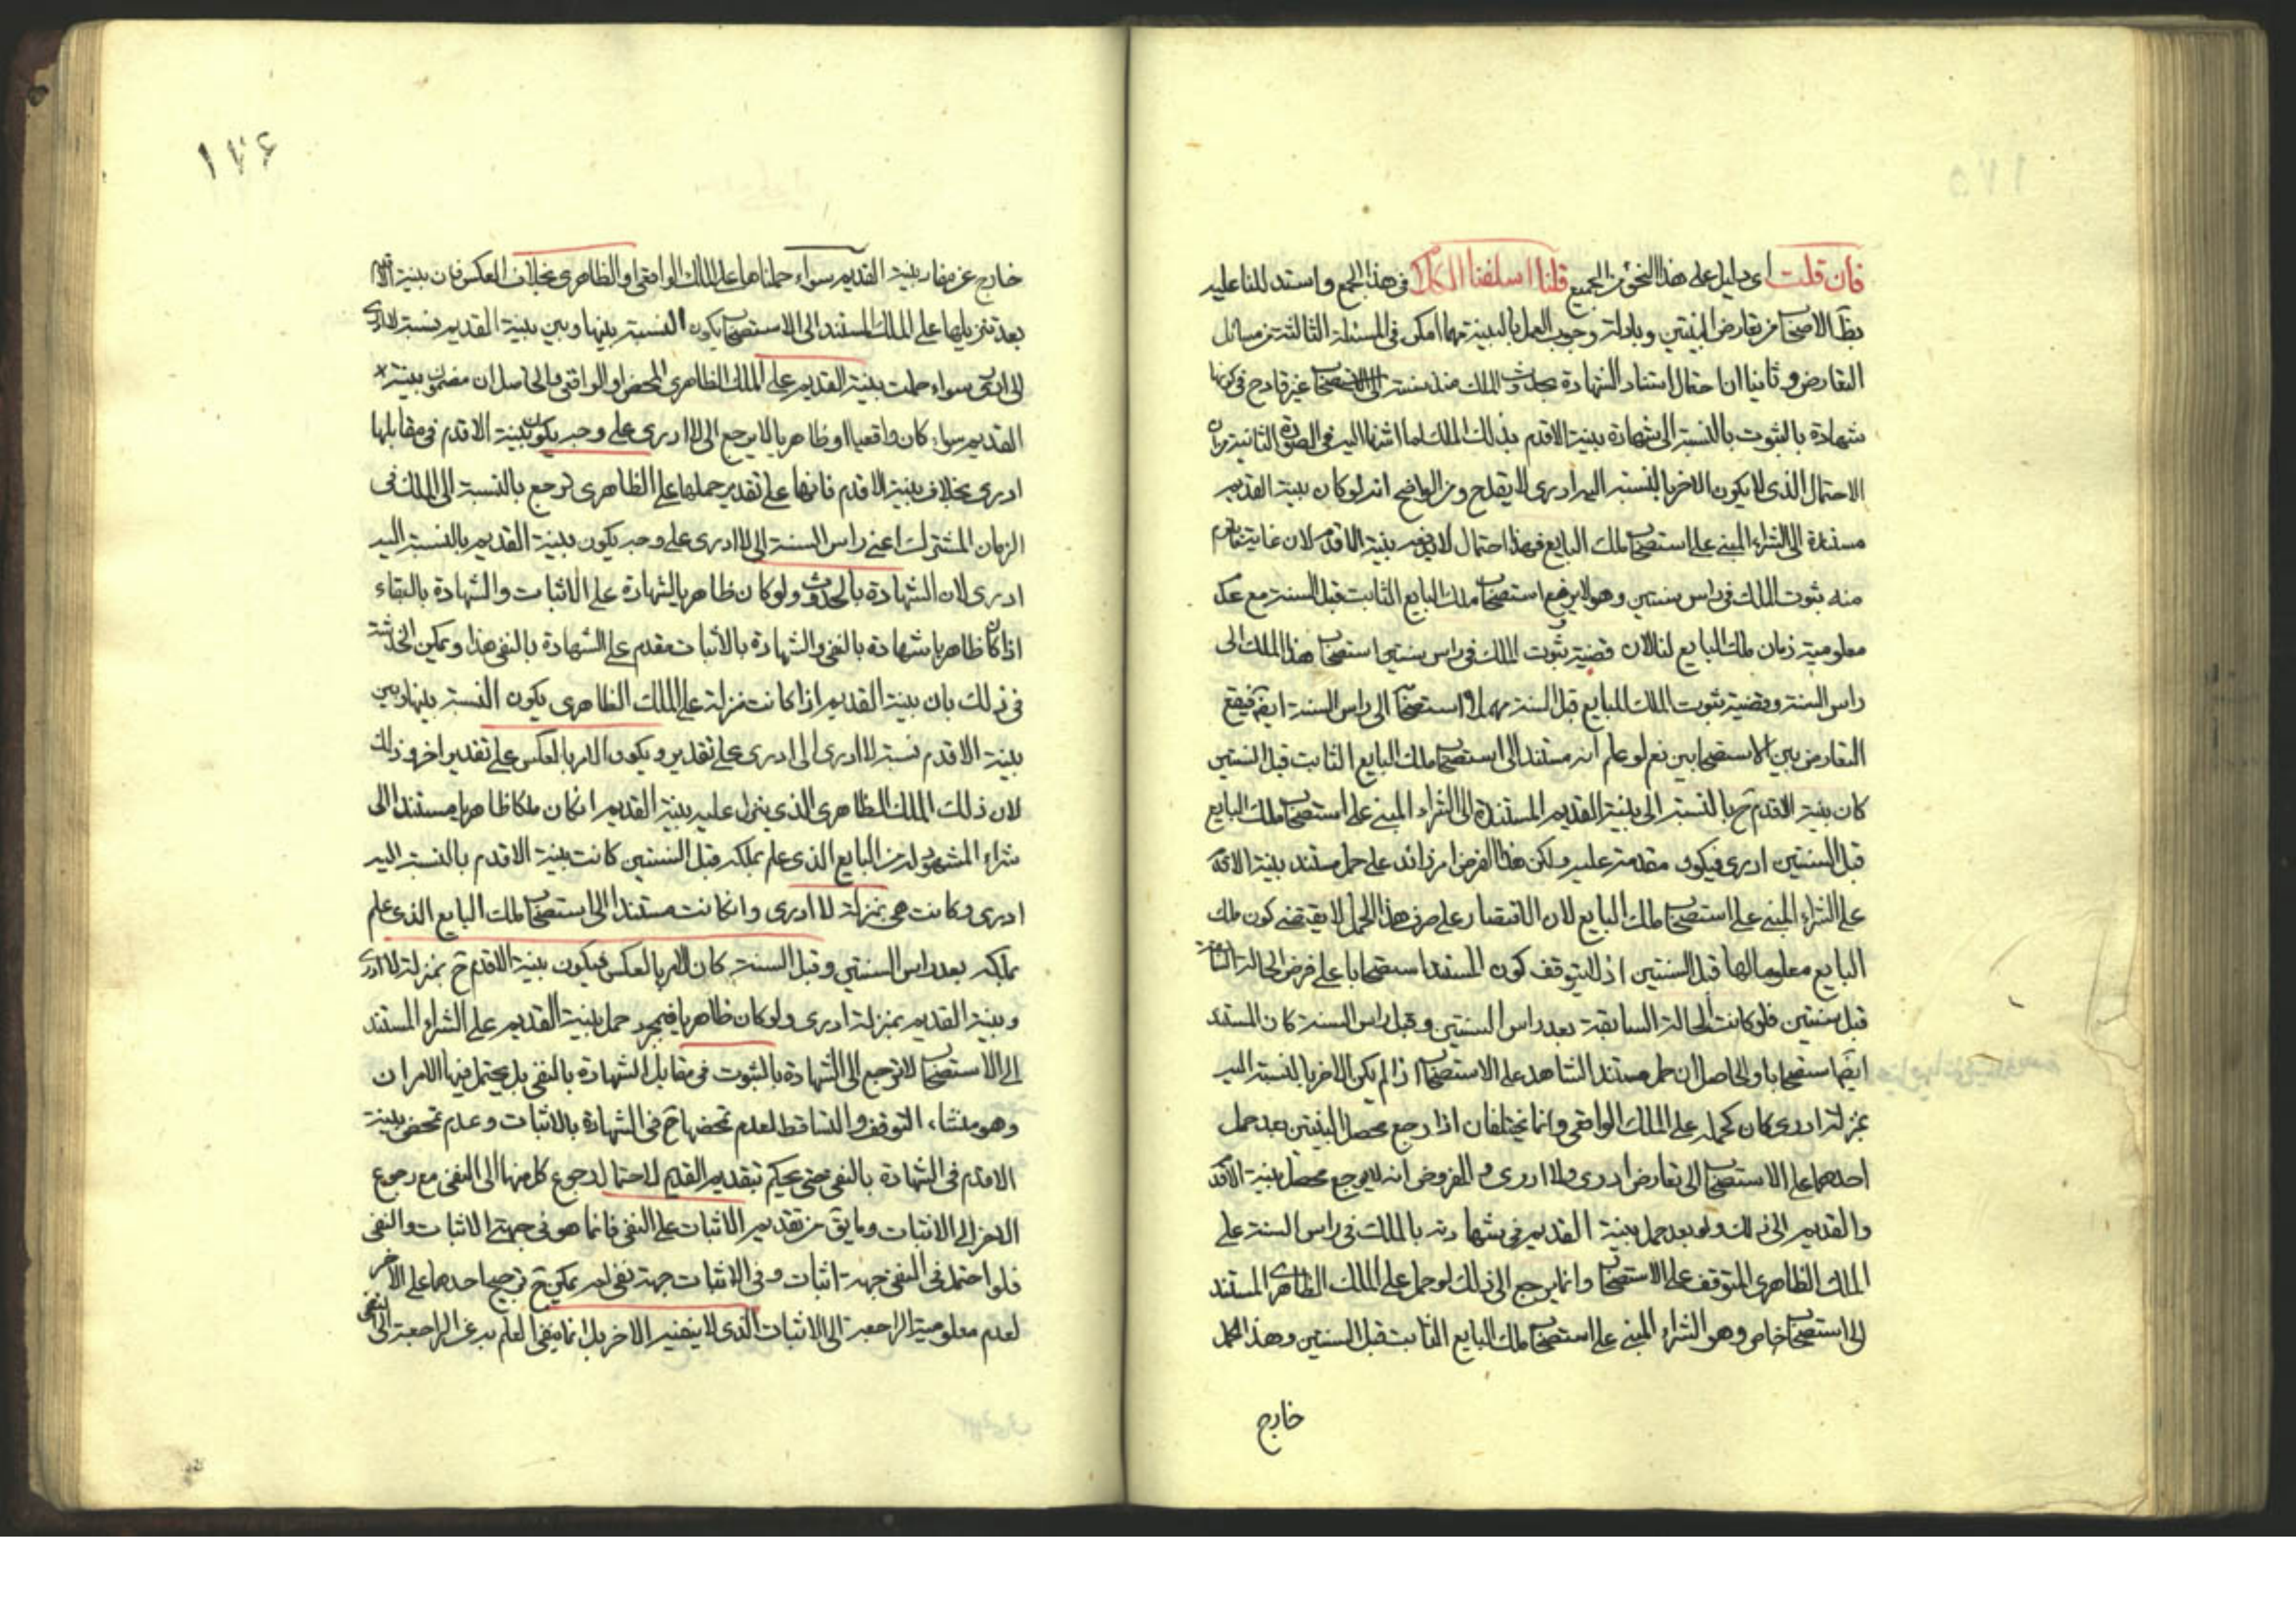 فان قلت اى دليل على هذا النحو من الجمع قلنا اسلفنا الكلام فى هذا الجمع واستدللنا عليه
بظ الاصحاب من تعارض البينتين وبادلة وجوب العمل بالبينة مهما امكن فى المسئلة الثالثة من مسائل
التعارض وثانيا ان احتمال استناد الشهادة بحدوث الملك منذ سنة الى الاستصحاب غير قادح فى كونها
شهادة بالثبوت بالنسبة الى شهادة بينة الاقدم بذلك الملك لما اشرنا اليه فى الصورة الثانية من ان
الاحتمال الذى لا يكون الاخر بالنسبة اليه ادرى لا يقدح ومن الواضح انه لو كان بينة القديم
مستندة الى الشراء المبنى على استصحاب ملك البايع فهذا احتمال لا يدفعه بينة الاقدم لان غاية
منه ثبوت الملك فى راس سنتين وهو لا يرفع استصحاب ملك البايع الثابت قبل السنة مع عدم
معلومية زمان ملك البايع لنا لان قضية ثبوت الملك فى راس سنتين استصحاب هذا الملك الى
راس السنة وقضية ثبوت الملك للبايع قبل السنة استصحابه الى راس السنة ايضا فيقع
التعارض بين الاستصحابين نعم لو علم انه مستند الى استصحاب ملك البايع الثابت قبل السنتين
كان بينة الاقدم ح بالنسبة الى بينة القديم المستندة الى الشراء المبنى على استصحاب ملك البايع
قبل السنتين ادرى فيكون مقدمة عليه ولكن هذا الفرض امر زائد على حمل مستند بينة الاقدم
على الشراء المبنى على استصحاب ملك البايع لان الاقتصار على صرف هذا الحمل لا يقتضى كون ملك
البايع معلوما لها قبل السنتين اذ لا يتوقف كون المستند استصحابا على فرض الحالة السابقة
قبل سنتين فلو كانت الحالة السابقة بعد راس السنتين وقبل راس السنة كان المستند
ايضا استصحابا والحاصل ان حمل مستند الشاهد على الاستصحاب اذا لم يكن الاخر بالنسبة اليه
بمنزلة ادرى كان كحمله على الملك الواقعى وانما يختلفان اذا رجع محصل البينتين بعد حمل
احدهما على الاستصحاب الى تعارض ادرى ولا ادرى والمفروض انه لا يرجع محصل بينة الاقدم
والقديم الى ذلك ولو بعد حمل بينة القديم فى شهادته بالملك فى راس السنة على
الملك الظاهرى المتوقف على الاستصحاب وانما يرجع الى ذلك لو حمل على الملك الظاهرى المستند
الى استصحاب خاص وهو الشراء المبنى على استصحاب ملك البايع الثابت قبل السنتين وهذا الحمل
خارج
١٧٦
خارج عن مفاد بينة القديم سواء حملناها على الملك الواقعى او الظاهرى بخلاف العكس فان بينة الاقدم
بعد تنزيلها على الملك المستند الى الاستصحاب يكون النسبة بينها وبين بينة القديم نسبة لا ادرى
الى ادرى سواء حملت بينة القديم على الملك الظاهرى المحض او الواقعى والحاصل ان مضمون بينة
القديم سواء كان واقعيا او ظاهريا لا يرجع الى لا ادرى على وجه يكون بينة الاقدم فى مقابلها
ادرى بخلاف بينة الاقدم فانها على تقدير حملها على الظاهرى ترجع بالنسبة الى الملك فى
الزمان المشترك اعنى راس السنة الى لا ادرى على وجه يكون بينة القديم بالنسبة اليه
ادرى لان الشهادة بالحدوث ولو كان ظاهريا شهادة على الاثبات والشهادة بالبقاء
اذا كان ظاهريا شهادة بالنفى والشهادة بالاثبات مقدم على الشهادة بالنفى هذا ويمكن الخدشة
فى ذلك بان بينة القديم اذا كانت منزلة على الملك الظاهرى يكون النسبة بينها وبين
بينة الاقدم نسبة لا ادرى الى ادرى على تقدير ويكون الامر بالعكس على تقدير اخر وذلك
لان ذلك الملك الظاهرى الذى ينزل عليه بينة القديم ان كان ملكا ظاهريا مستندا الى
شراء المشهود له من البايع الذى علم بملكه قبل السنتين كانت بينة الاقدم بالنسبة اليه
ادرى وكانت هى بمنزلة لا ادرى وان كانت مستندا الى استصحاب ملك البايع الذى علم
بملكه بعد راس السنتين وقبل السنة كان الامر بالعكس فيكون بينة الاقدم ح بمنزلة لا ادرى
وبينة القديم بمنزلة ادرى ولو كان ظاهريا فبمجرد حمل بينة القديم على الشراء المستند
الى الاستصحاب لا ترجع الى الشهادة بالثبوت فى مقابل الشهادة بالنفى بل يحتمل فيها الامران
وهو منشاء التوقف والتساقط لعدم تمحضها ح فى الشهادة بالاثبات وعدم تمحض بينة
الاقدم فى الشهادة بالنفى حتى يحكم بتقديم القديم لاحتمال رجوع كل منها الى النفى مع رجوع
الاخر الى الاثبات وما يق من تقديم الاثبات على النفى فانما هو فى جهتى الاثبات والنفى
فلو احتمل فى النفى جهة اثبات وفى الاثبات جهة نفى لم يمكن ح ترجيح احدهما على الاخر
لعدم معلومية الراجعة الى الاثبات الذى لا ينفيه الاخر بل انما ينفى العلم به عن الراجعة الى النفى